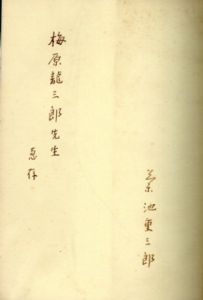 菊池重三郎
梅原龍三郎先生
恵存